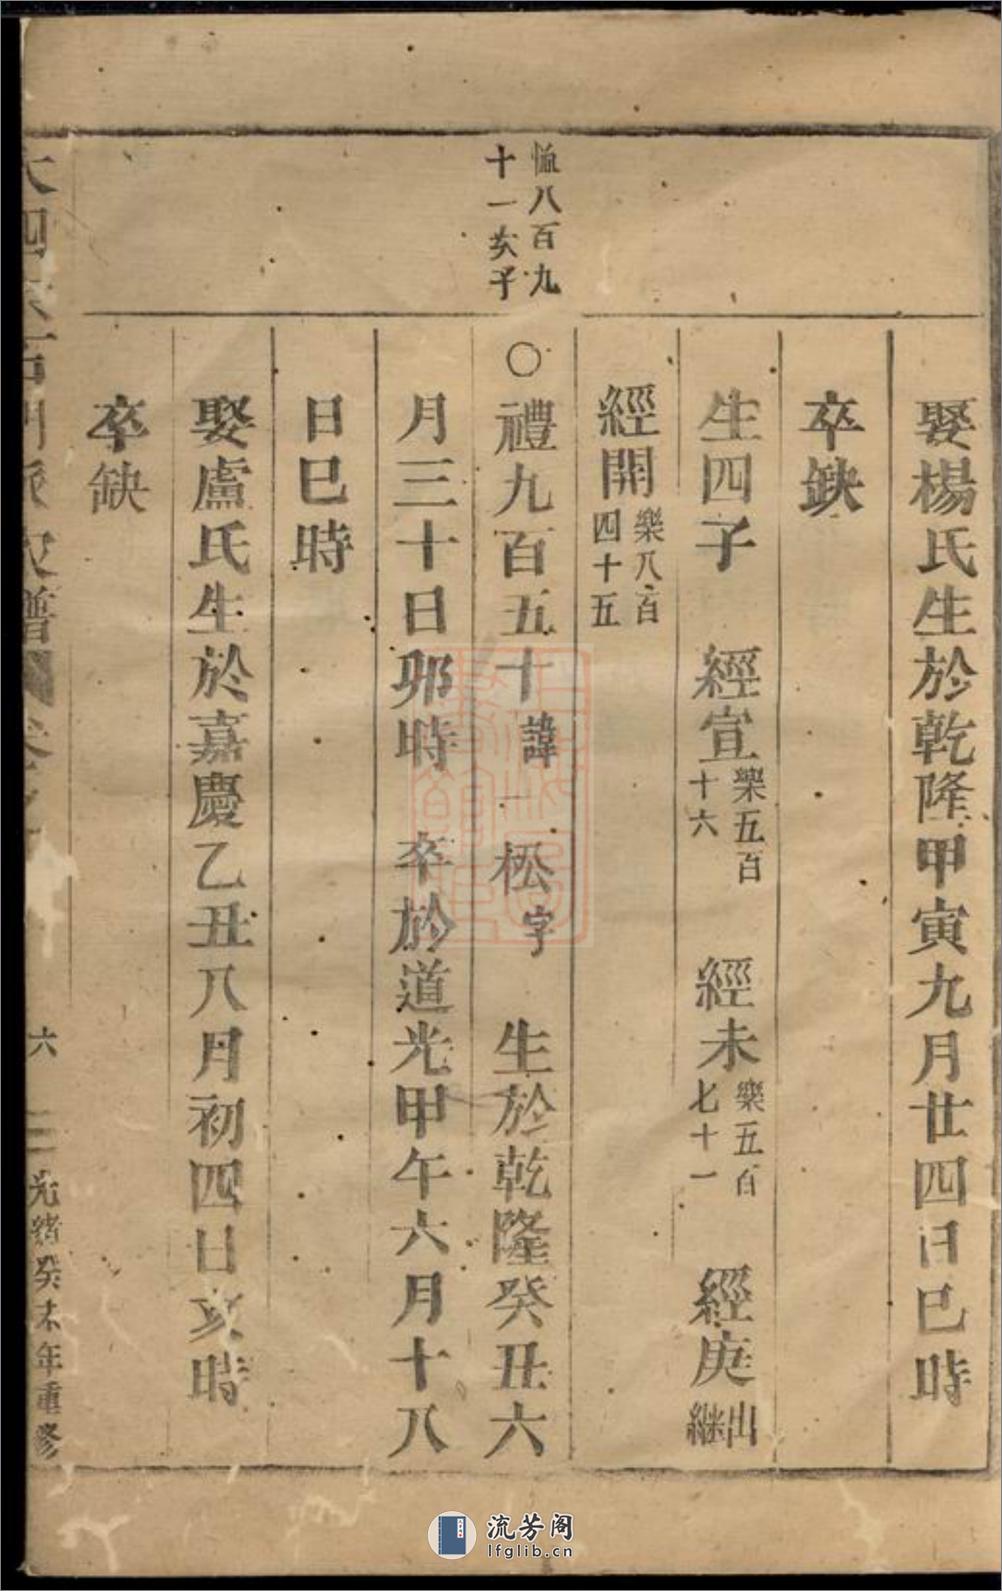 娶楊氏生於乾隆甲寅九月廿四日巳時
卒缺
生四子 經宣樂五百十六 經未樂五百七十一 經庚出繼
經開樂八百四十五
恤八百九
十一次子
○禮九百五十諱一松字 生於乾隆癸丑六
月三十日卯時 卒於道光甲午六月十八
日巳時
娶盧氏生於嘉慶乙丑八月初四日亥時
卒缺
譜 卷之 六 光緒癸未年重修
流芳阁
lfglib.cn